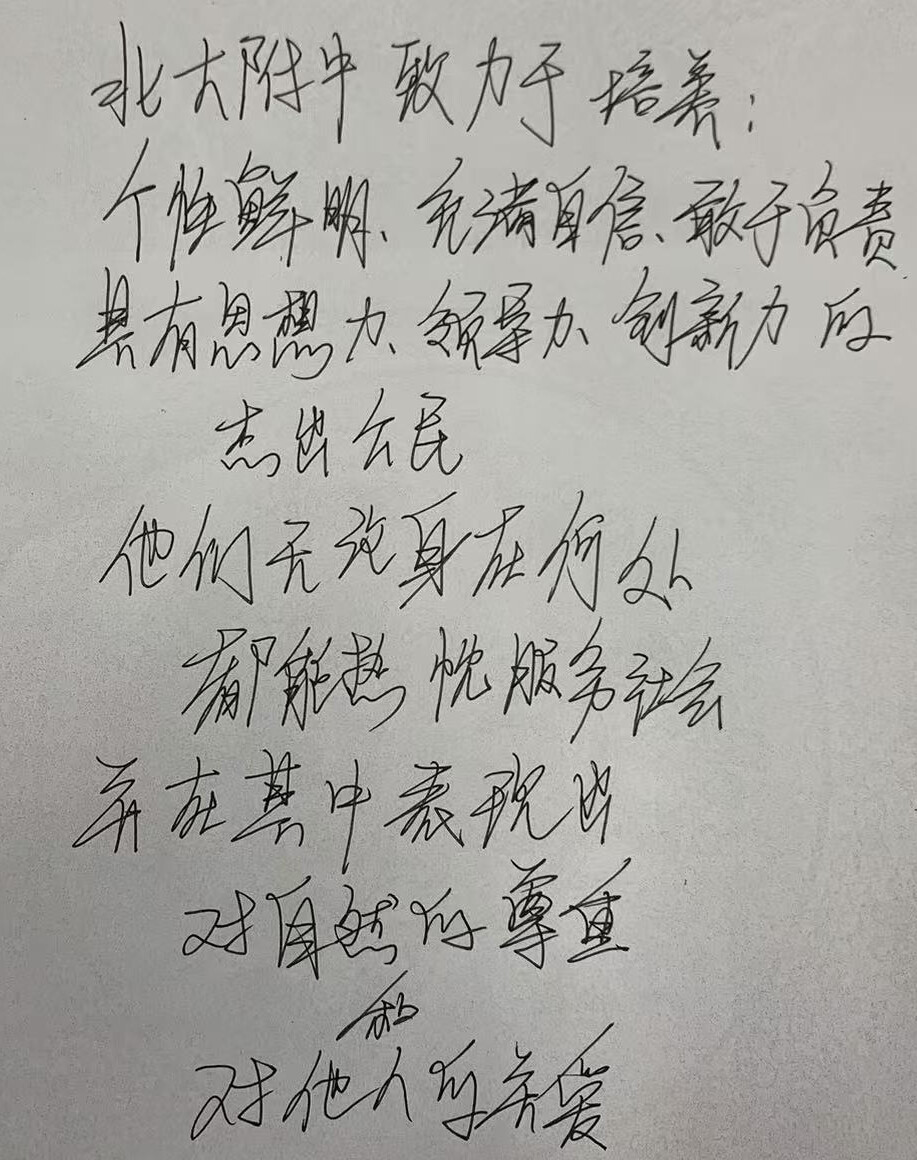 北大附中致力于培养:
个性鲜明、充满自信、敢于负责
具有思想力、领导力、创新力的
杰出公民
他们无论身在何处
都能热忱服务社会
并在其中表现出
对自然的尊重
和
对他人的关爱